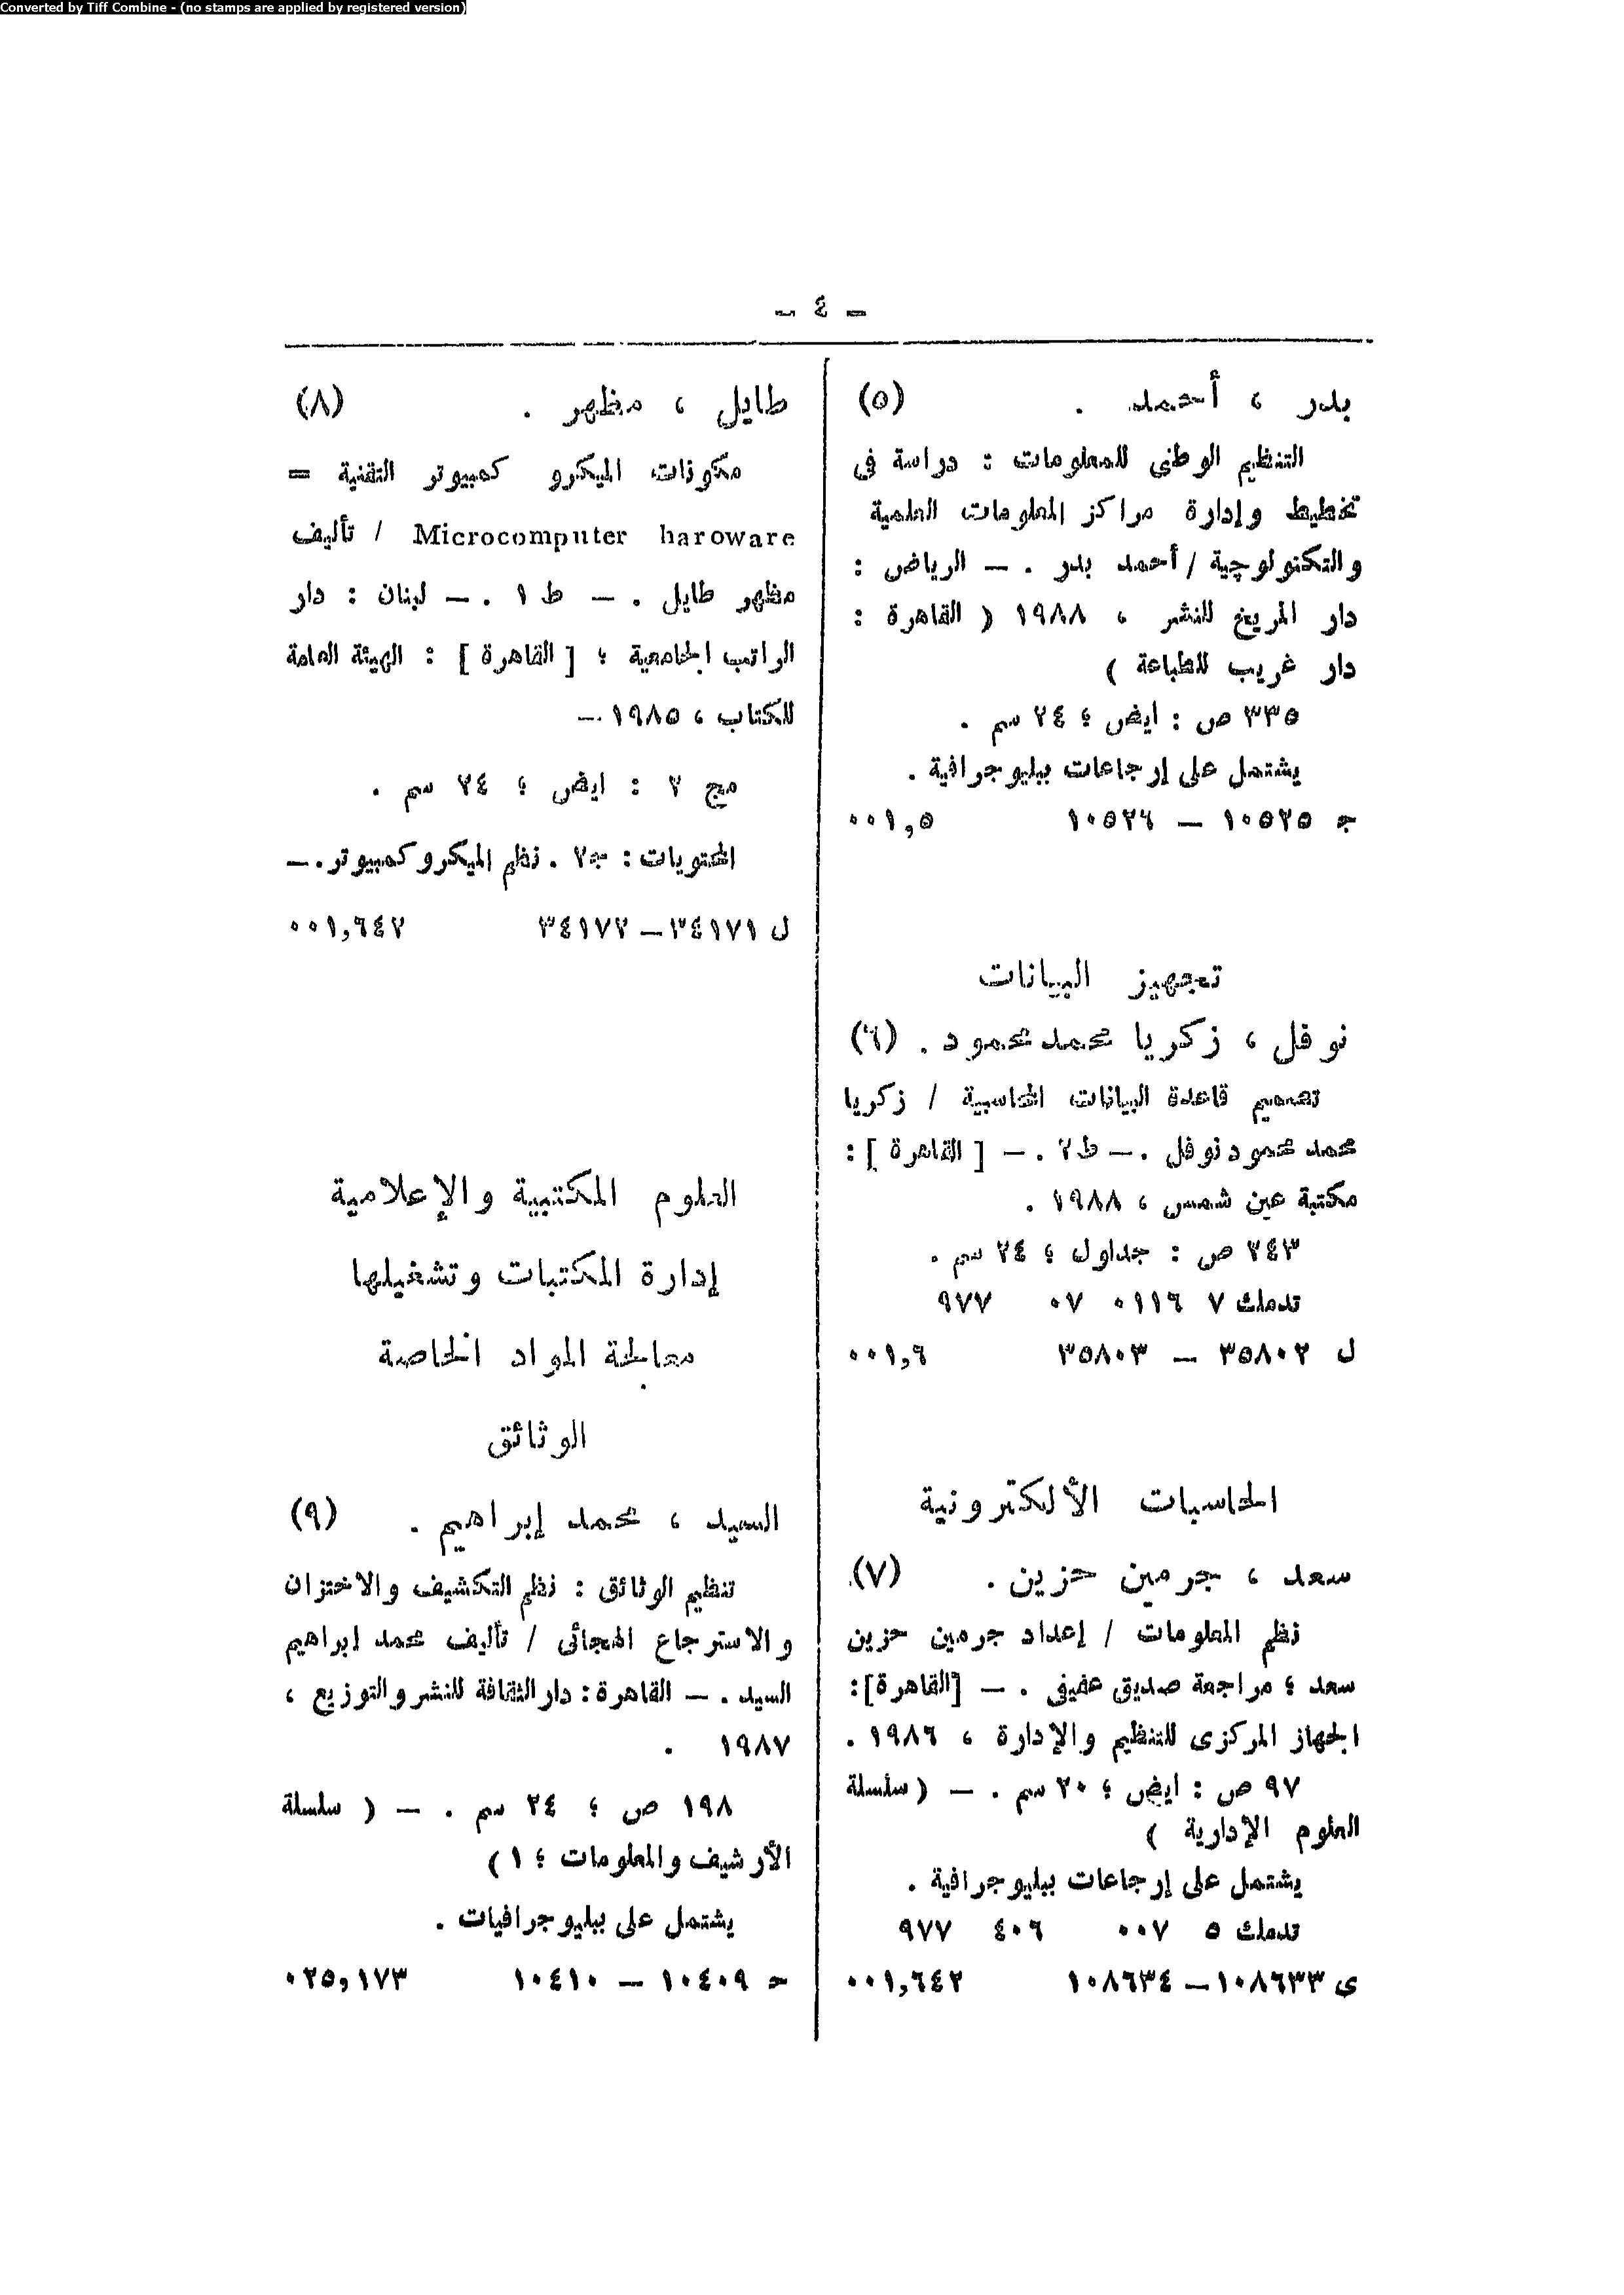 Converted by Tiff Combine - (no stamps are applied by registered version)
– ٤ –
بدر ، أحمد . (٥)
التنظيم الوطنى للمعلومات : دراسة فى
تخطيط وإدارة مراكز المعلومات العلمية
والتكنولوچية / أحمد بدر . – الرياض :
دار المريخ للنشر ، ١٩٨٨ ( القاهرة :
دار غريب للطباعة )
٣٣٥ ص : ايض ؛ ٢٤ سم .
يشتمل على إرجاعات ببليوجرافية .
جـ ١٠٥٢٥ – ١٠٥٢٦ ٠٠١,٥
تجهيز البيانات
نوفل ، زكريا محمد محمود . (٦)
تصميم قاعدة البيانات المحاسبية / زكريا
محمد محمود نوفل . – ط٢ . – [ القاهرة ] :
مكتبة عين شمس ، ١٩٨٨ .
٢٤٣ ص : جداول ؛ ٢٤ سم .
تدمك ٧ ٠١١٦ ٠٧ ٩٧٧
ل ٣٥٨٠٢ – ٣٥٨٠٣ ٠٠١,٦
الحاسبات الألكترونية
سعد ، جرمين حزين . (٧)
نظم المعلومات / إعداد جرمين حزين
سعد ؛ مراجعة صديق عفيفى . – [القاهرة] :
الجهاز المركزى للتنظيم والإدارة ، ١٩٨٦ .
٩٧ ص : ايض ؛ ٢٠ سم . – ( سلسلة
العلوم الإدارية )
يشتمل على إرجاعات ببليوجرافية .
تدمك ٥ ٠٠٧ ٤٠٦ ٩٧٧
ى ١٠٨٦٣٣ – ١٠٨٦٣٤ ٠٠١,٦٤٢
طايل ، مظهر . (٨)
مكونات الميكرو كمبيوتر التقنية =
Microcomputer haroware / تأليف
مظهر طايل . – ط ١ . – لبنان : دار
الراتب الجامعية ؛ [ القاهرة ] : الهيئة العامة
للكتاب ، ١٩٨٥ –
مج ٢ : ايض ؛ ٢٤ سم .
المحتويات : جـ٢ . نظم الميكروكمبيوتر . –
ل ٣٤١٧١ – ٣٤١٧٢ ٠٠١,٦٤٢
العلوم المكتبية والإعلامية
إدارة المكتبات وتشغيلها
معالجة المواد الخاصة
الوثائق
السيد ، محمد إبراهيم . (٩)
تنظيم الوثائق : نظم التكشيف والاختزان
والاسترجاع الهجائى / تأليف محمد ابراهيم
السيد . – القاهرة : دار الثقافة للنشر والتوزيع ،
١٩٨٧ .
١٩٨ ص ؛ ٢٤ سم . – ( سلسلة
الأرشيف والمعلومات ؛ ١ )
يشتمل على ببليوجرافيات .
حـ ١٠٤٠٩ – ١٠٤١٠ ٠٢٥,١٧٣